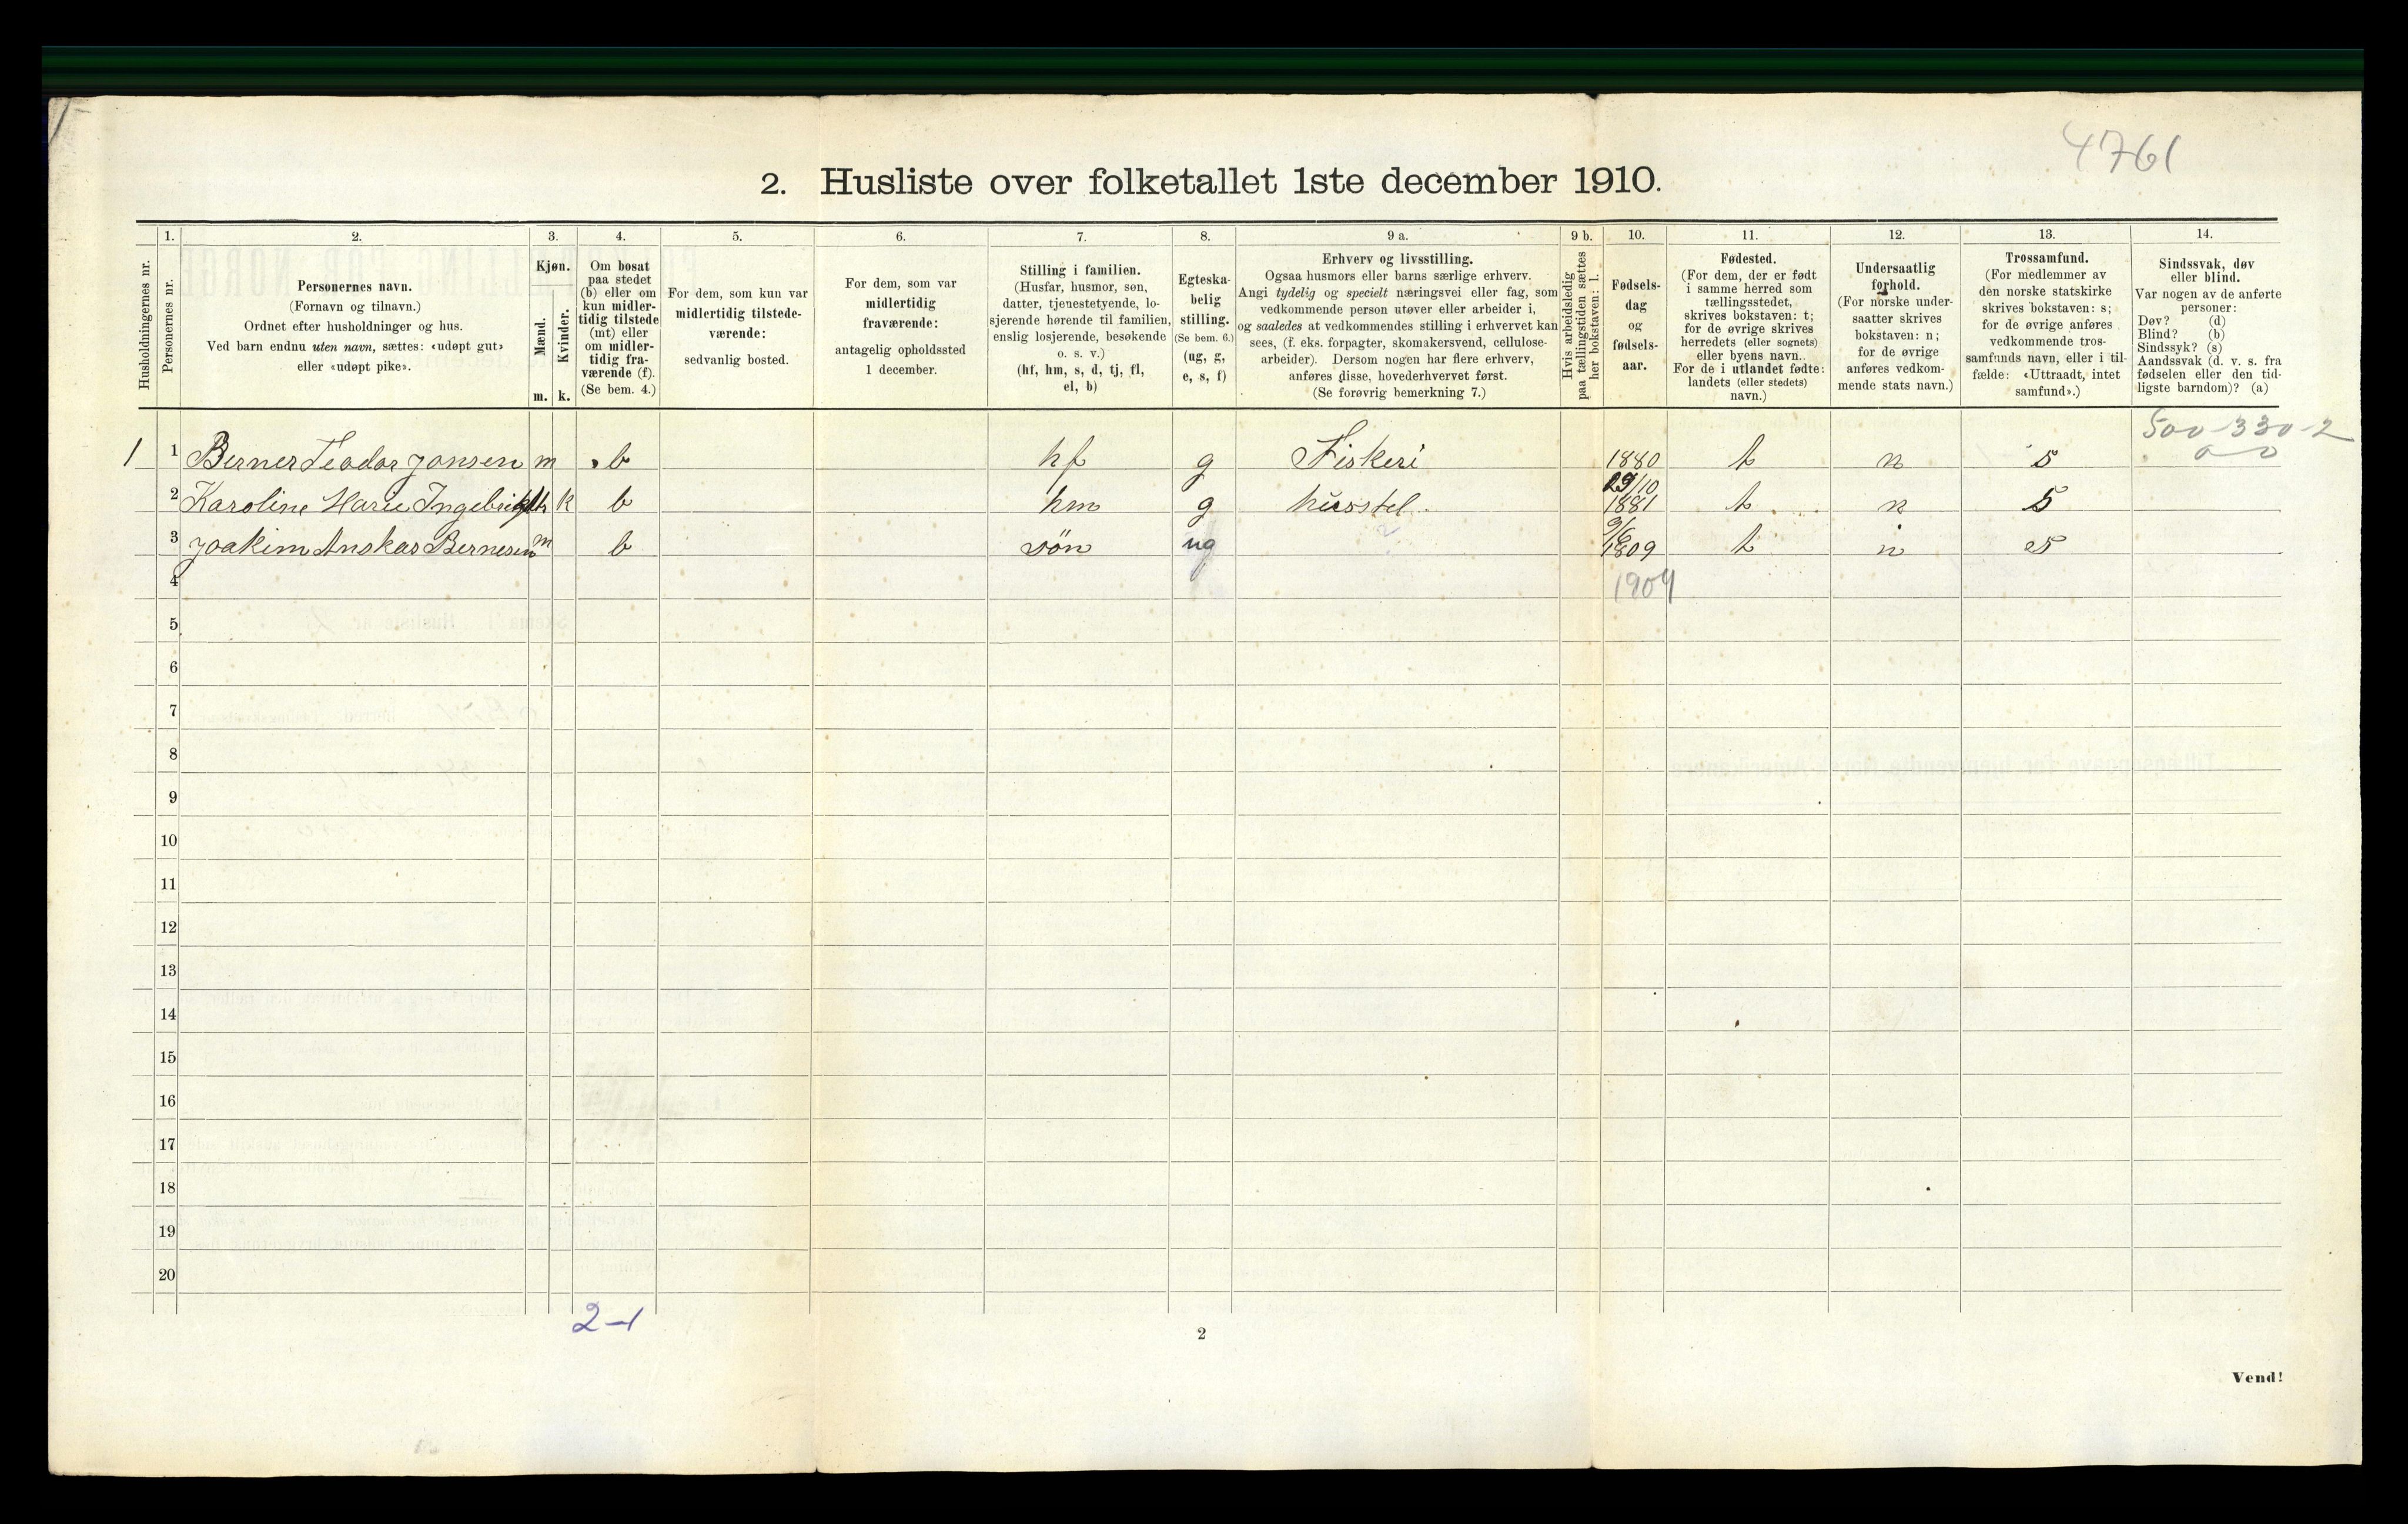 4761
2. Husliste over folketallet 1ste december 1910.
Husholdningernes nr.
1.
Personernes nr.
2.
Personernes navn.
(Fornavn og tilnavn.)
Ordnet efter husholdninger og hus.
Ved barn endnu uten navn, sættes: «udøpt gut»
eller «udøpt pike».
3.
Kjøn.
Mænd.
Kvinder.
m. k.
4.
Om bosat
paa stedet
(b) eller om
kun midler-
tidig tilstede
(mt) eller
om midler-
tidig fra-
værende (f).
(Se bem. 4.)
5.
For dem, som kun var
midlertidig tilstede-
værende:
sedvanlig bosted.
6.
For dem, som var
midlertidig
fraværende:
antagelig opholdssted
1 december.
7.
Stilling i familien.
(Husfar, husmor, søn,
datter, tjenestetyende, lo-
sjerende hørende til familien,
enslig losjerende, besøkende
o. s. v.)
(hf, hm, s, d, tj, fl,
el, b)
8.
Egteska-
belig
stilling.
(Se bem. 6.)
(ug, g,
e, s, f)
9 a.
Erhverv og livsstilling.
Ogsaa husmors eller barns særlige erhverv.
Angi tydelig og specielt næringsvei eller fag, som
vedkommende person utøver eller arbeider i,
og saaledes at vedkommendes stilling i erhvervet kan
sees, (f. eks. forpagter, skomakersvend, cellulose-
arbeider). Dersom nogen har flere erhverv,
anføres disse, hovederhvervet først.
(Se forøvrig bemerkning 7.)
9 b.
Hvis arbeidsledig
paa tællingstiden sættes
her bokstaven: l.
10.
Fødsels-
dag
og
fødsels-
aar.
11.
Fødested.
(For dem, der er født
i samme herred som
tællingsstedet,
skrives bokstaven: t;
for de øvrige skrives
herredets (eller sognets)
eller byens navn.
For de i utlandet fødte:
landets (eller stedets)
navn.)
12.
Undersaatlig
forhold.
(For norske under-
saatter skrives
bokstaven: n;
for de øvrige
anføres vedkom-
mende stats navn.)
13.
Trossamfund.
(For medlemmer av
den norske statskirke
skrives bokstaven: s;
for de øvrige anføres
vedkommende tros-
samfunds navn, eller i til-
fælde: «Uttraadt, intet
samfund».)
14.
Sindssvak, døv
eller blind.
Var nogen av de anførte
personer:
Døv? (d)
Blind? (b)
Sindssyk? (s)
Aandssvak (d. v. s. fra
fødselen eller den tid-
ligste barndom)? (a)
500-330-2
0 0
1 1 Berner Teodor Jonsen m b hf g Fiskeri 1880 t n s
29/10
2 Karoline Marie k b hm g husstel 1881 t n s
9/6
3 Joakim Anskar Bernesen m b søn ug 1809 t n s
4 1909
5
6
7
8
9
10
11
12
13
14
15
16
17
18
19
20
2-1
2
Vend!